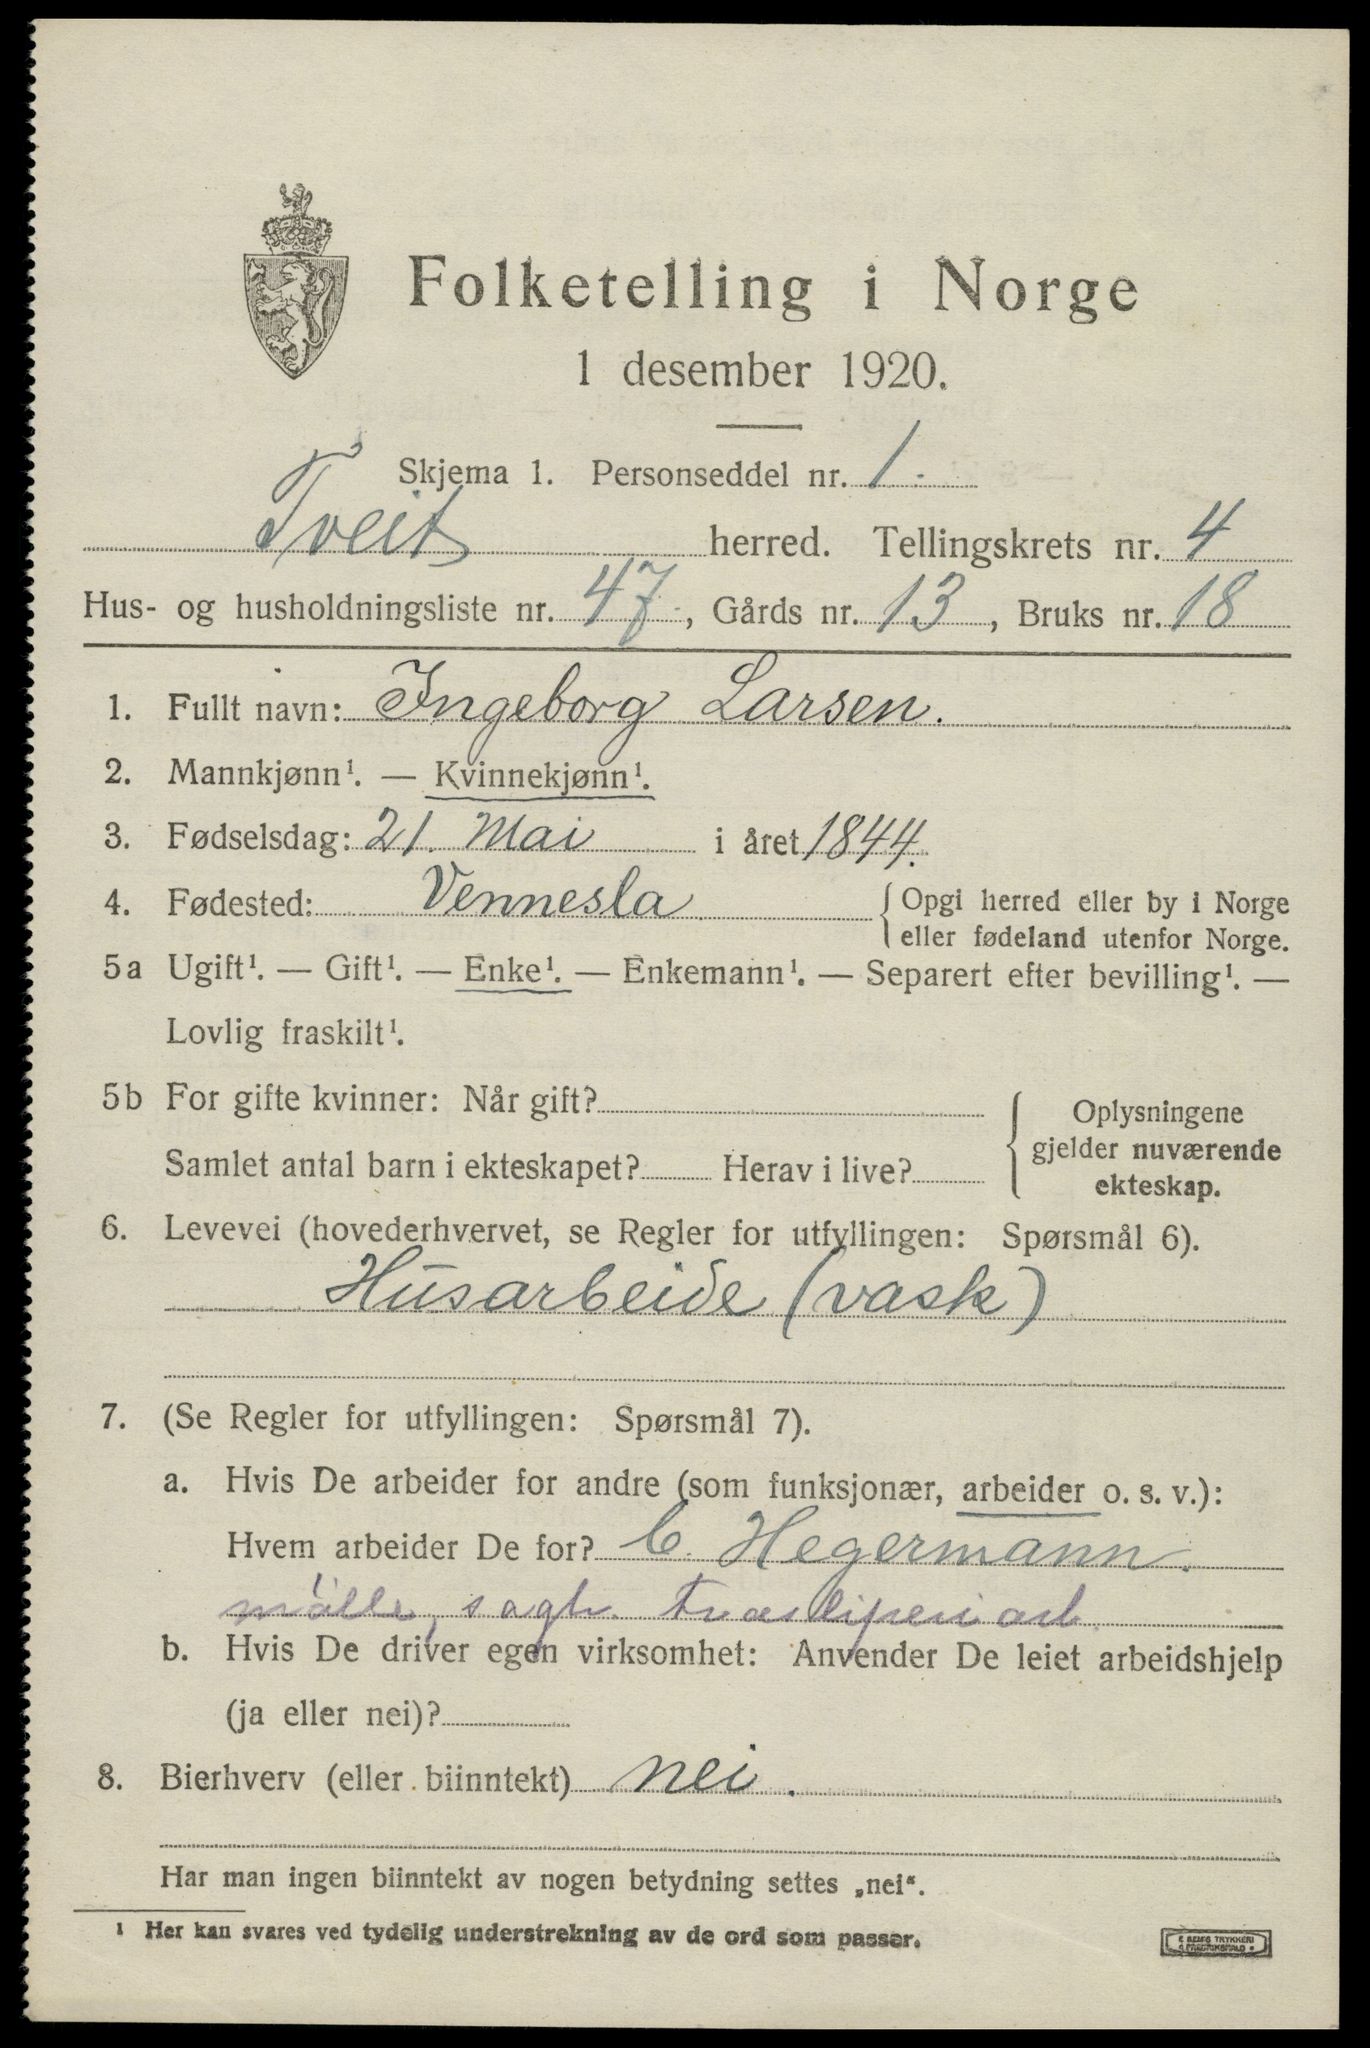 Folketelling i Norge
1 desember 1920.
Skjema 1. Personseddel nr. 1.
Tveit herred. Tellingskrets nr. 4
Hus- og husholdningsliste nr. 47, Gårds nr. 13, Bruks nr. 18
1. Fullt navn: Ingeborg Larsen.
2. Mannkjønn¹. — Kvinnekjønn¹.
3. Fødselsdag: 21. Mai i året 1844.
4. Fødested: Vennesla { Opgi herred eller by i Norge
eller fødeland utenfor Norge.
5a Ugift¹. — Gift¹. — Enke¹. — Enkemann¹. — Separert efter bevilling¹. —
Lovlig fraskilt¹.
5b For gifte kvinner: Når gift?
Samlet antal barn i ekteskapet? Herav i live?
{ Oplysningene
gjelder nuværende
ekteskap.
6. Levevei (hovederhvervet, se Regler for utfyllingen: Spørsmål 6).
Husarbeide (vask)
7. (Se Regler for utfyllingen: Spørsmål 7).
a. Hvis De arbeider for andre (som funksjonær, arbeider o. s. v.):
Hvem arbeider De for? C. Hegermann.
mölle, sagbr.
b. Hvis De driver egen virksomhet: Anvender De leiet arbeidshjelp
(ja eller nei)?
8. Bierhverv (eller biinntekt) nei.
Har man ingen biinntekt av nogen betydning settes „nei“.
¹ Her kan svares ved tydelig understrekning av de ord som passer.